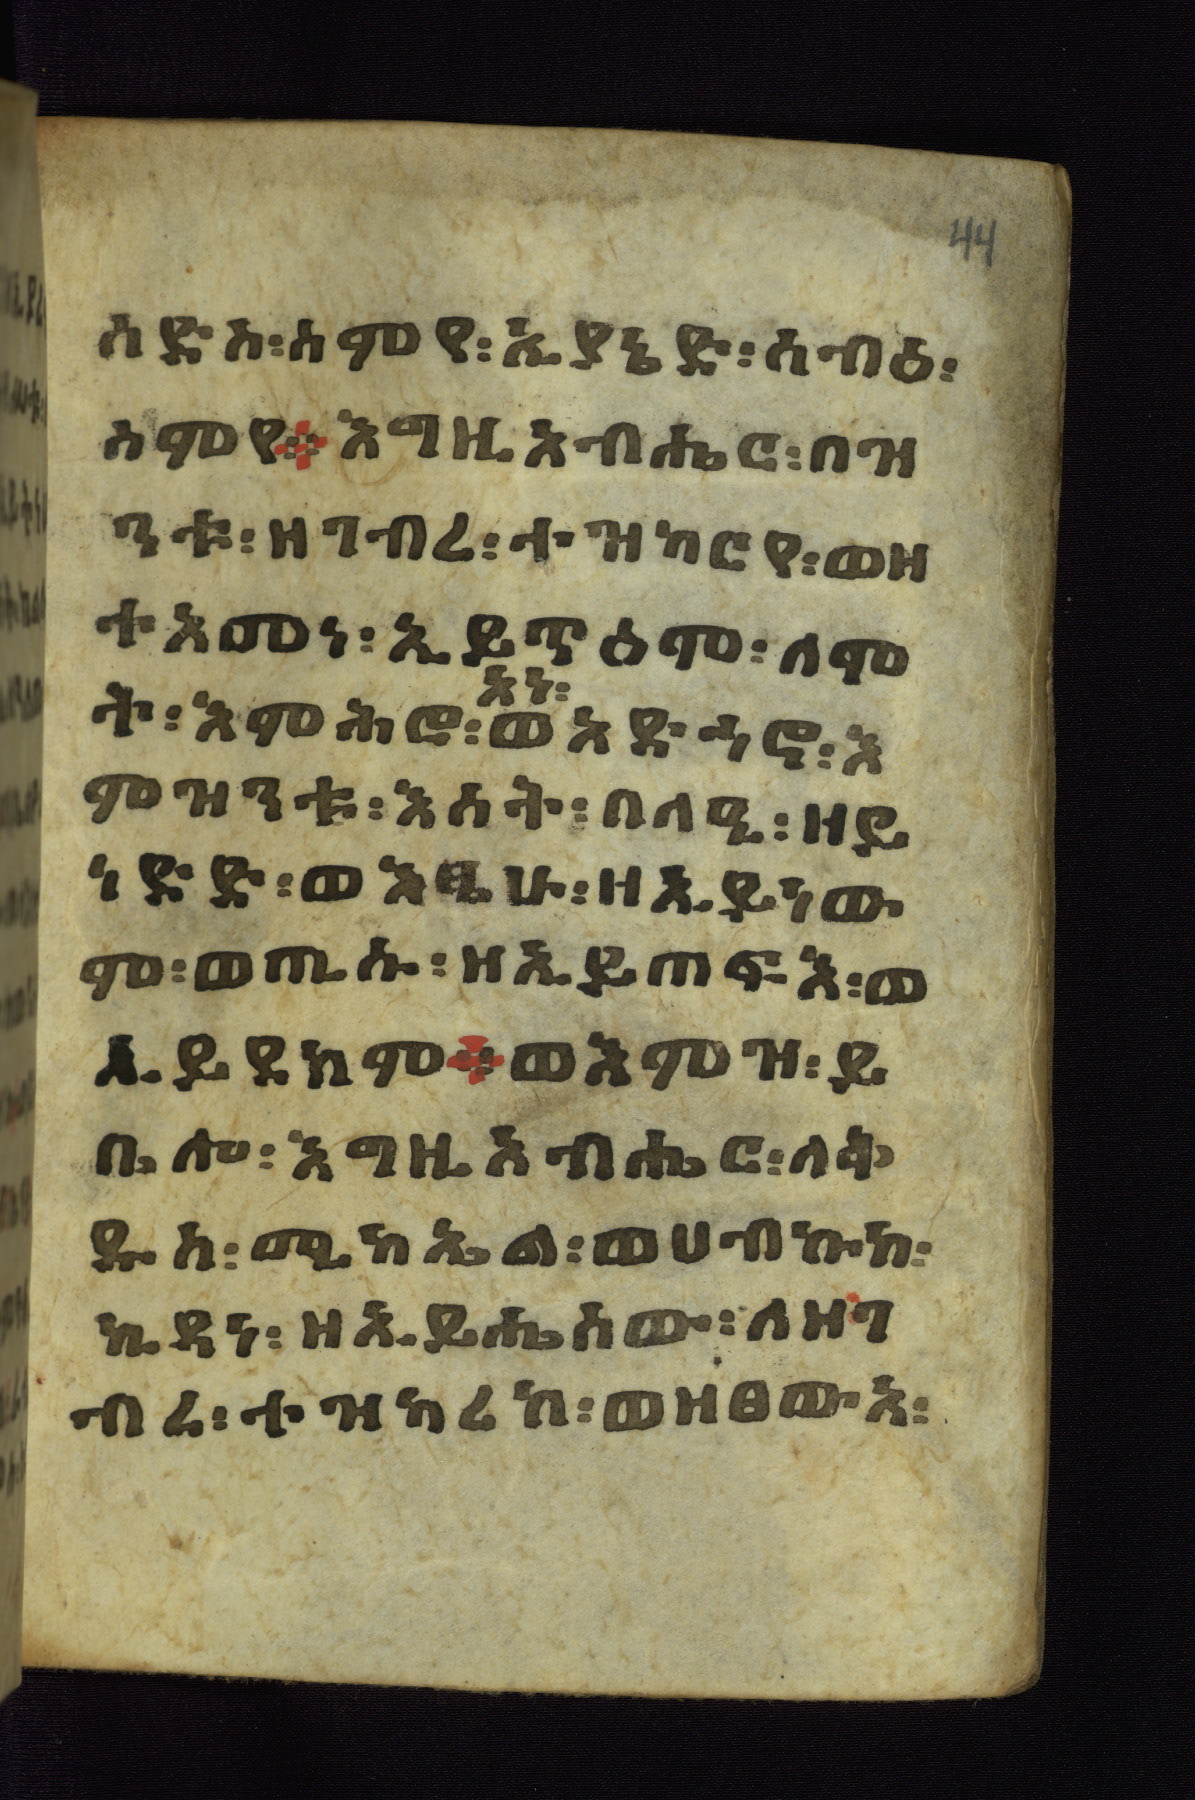 44
ስድስ፡ስምየ፡ኢያኔድ፡ስብዕ፡
ስምየ፨እግዚአብሔር፡በዝ
ንቱ፡ዘገብረ፡ተዝካርየ፡ወዘ
ተአመነ፡ኢይጥዕም፡ለሞ
አነ፡
ት፡እምሕሮ፡ወአድኅኖ፡እ
ምዝንቱ፡እሳት፡በላዒ፡ዘይ
ነድድ፡ወእፄሁ፡ዘኢይነው
ም፡ወጢሱ፡ዘኢይጠፍእ፡ወ
ኢይደክም፨ወእምዝ፡ይ
ቤሎ፡እግዚአብሔር፡ለቅ
ዱስ፡ሚካኤል፡ወሀብኩከ፡
ኪዳነ፡ዘኢይሔሰው፡ለዘገ
ብረ፡ተዝካረከ፡ወዘፀውአ፡